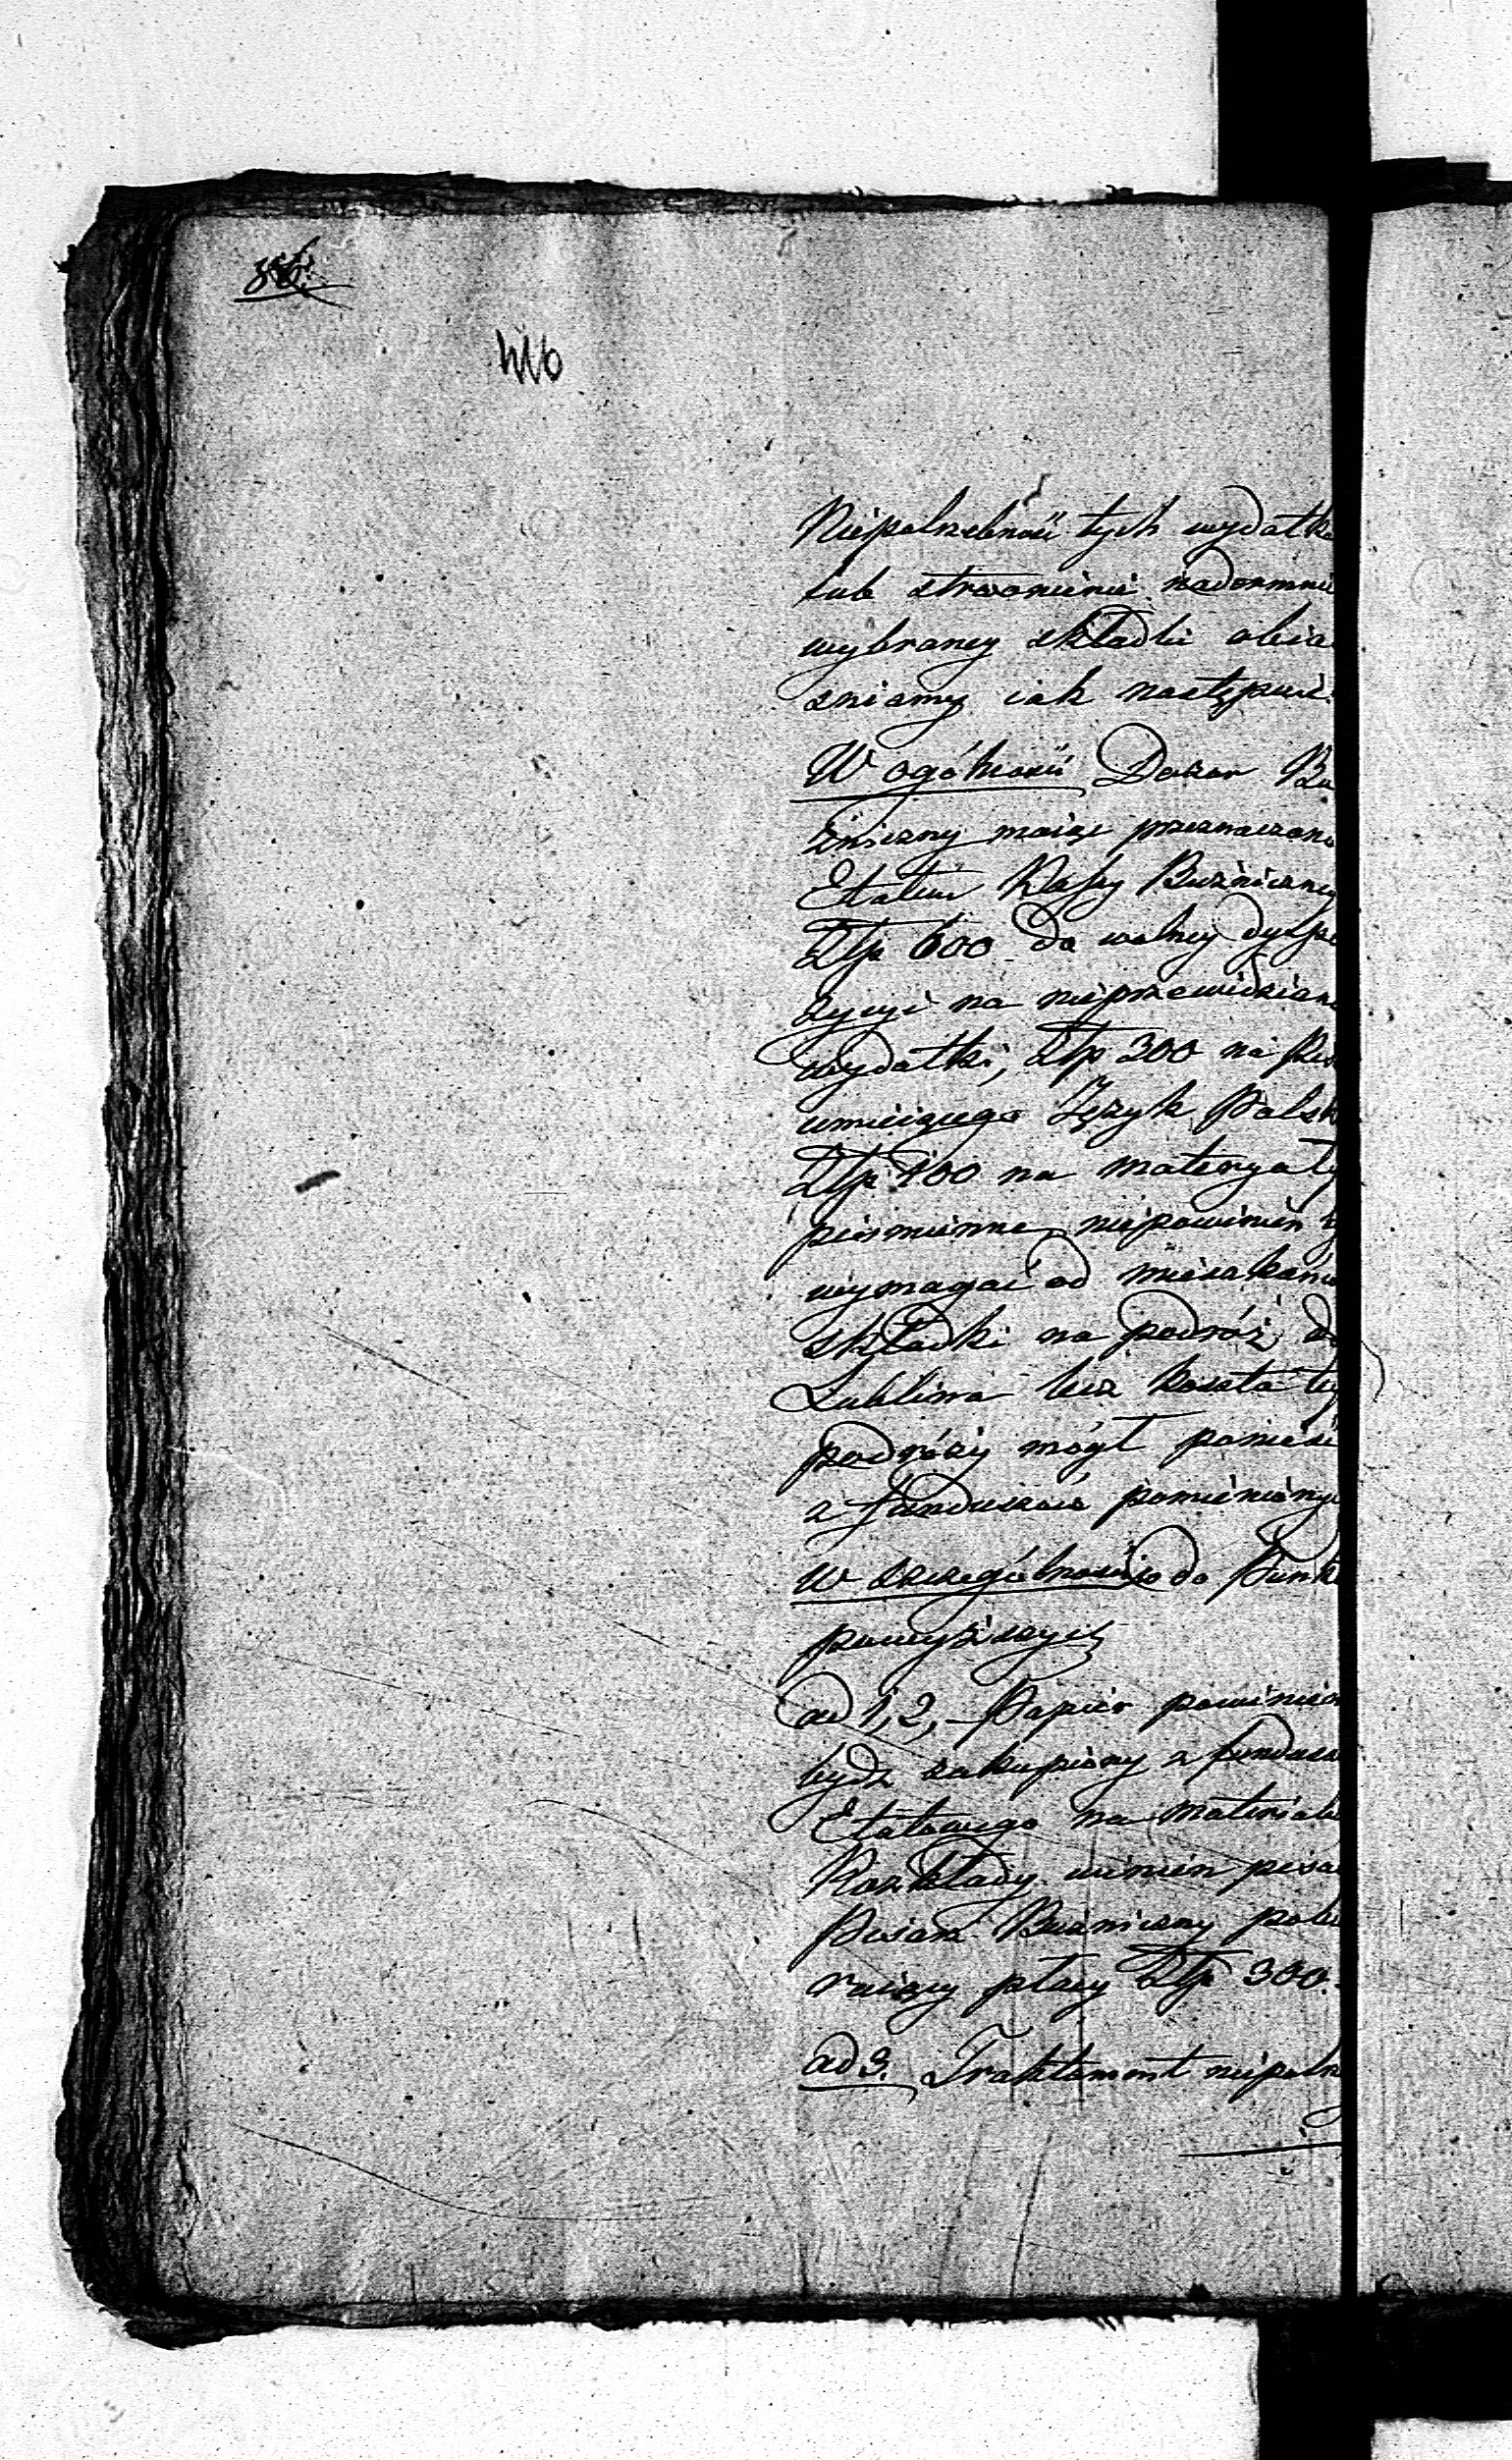 446
Niepotrzebność tych wydatkó
lub strwonienie nadormnie
wybraney składki obia
sniamy iak następuie:
W ogólności Dozor Bu
żniczny maiąc przeznaczone
Etatem Kassy Bużniczney
Złp 600 do wolney dyspo
zycyi na nieprzewidziane
wydatki, Złp 300 na Pis
umieiącego Język Polsk
Złp 100 na materyały
piśmienne, niepowinien
wymagać od mieszkańc
składki na podróż do
Lublina lecz koszta tey
podróży mógł ponieść
z funduszów pomieniony
w szczególności do Punk
powyższych
ad 1, 2, Papier powinien
bydź zakupiony z fundusz
Etatowego na materiały
Rozkłady winien pisać
Pisarz Bużniczny pobie
raiący płacy Złp 300.
ad 3. Traktament niepotrz